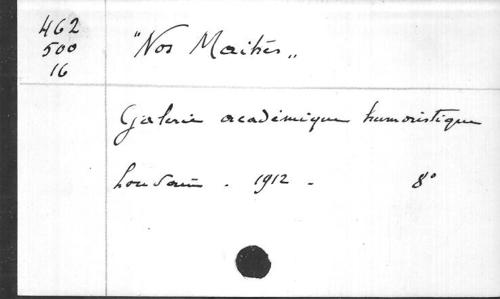 462
500
16
"Nos Maîtres"
Galerie académique humoristique
Lousanne . 1912 - 8°